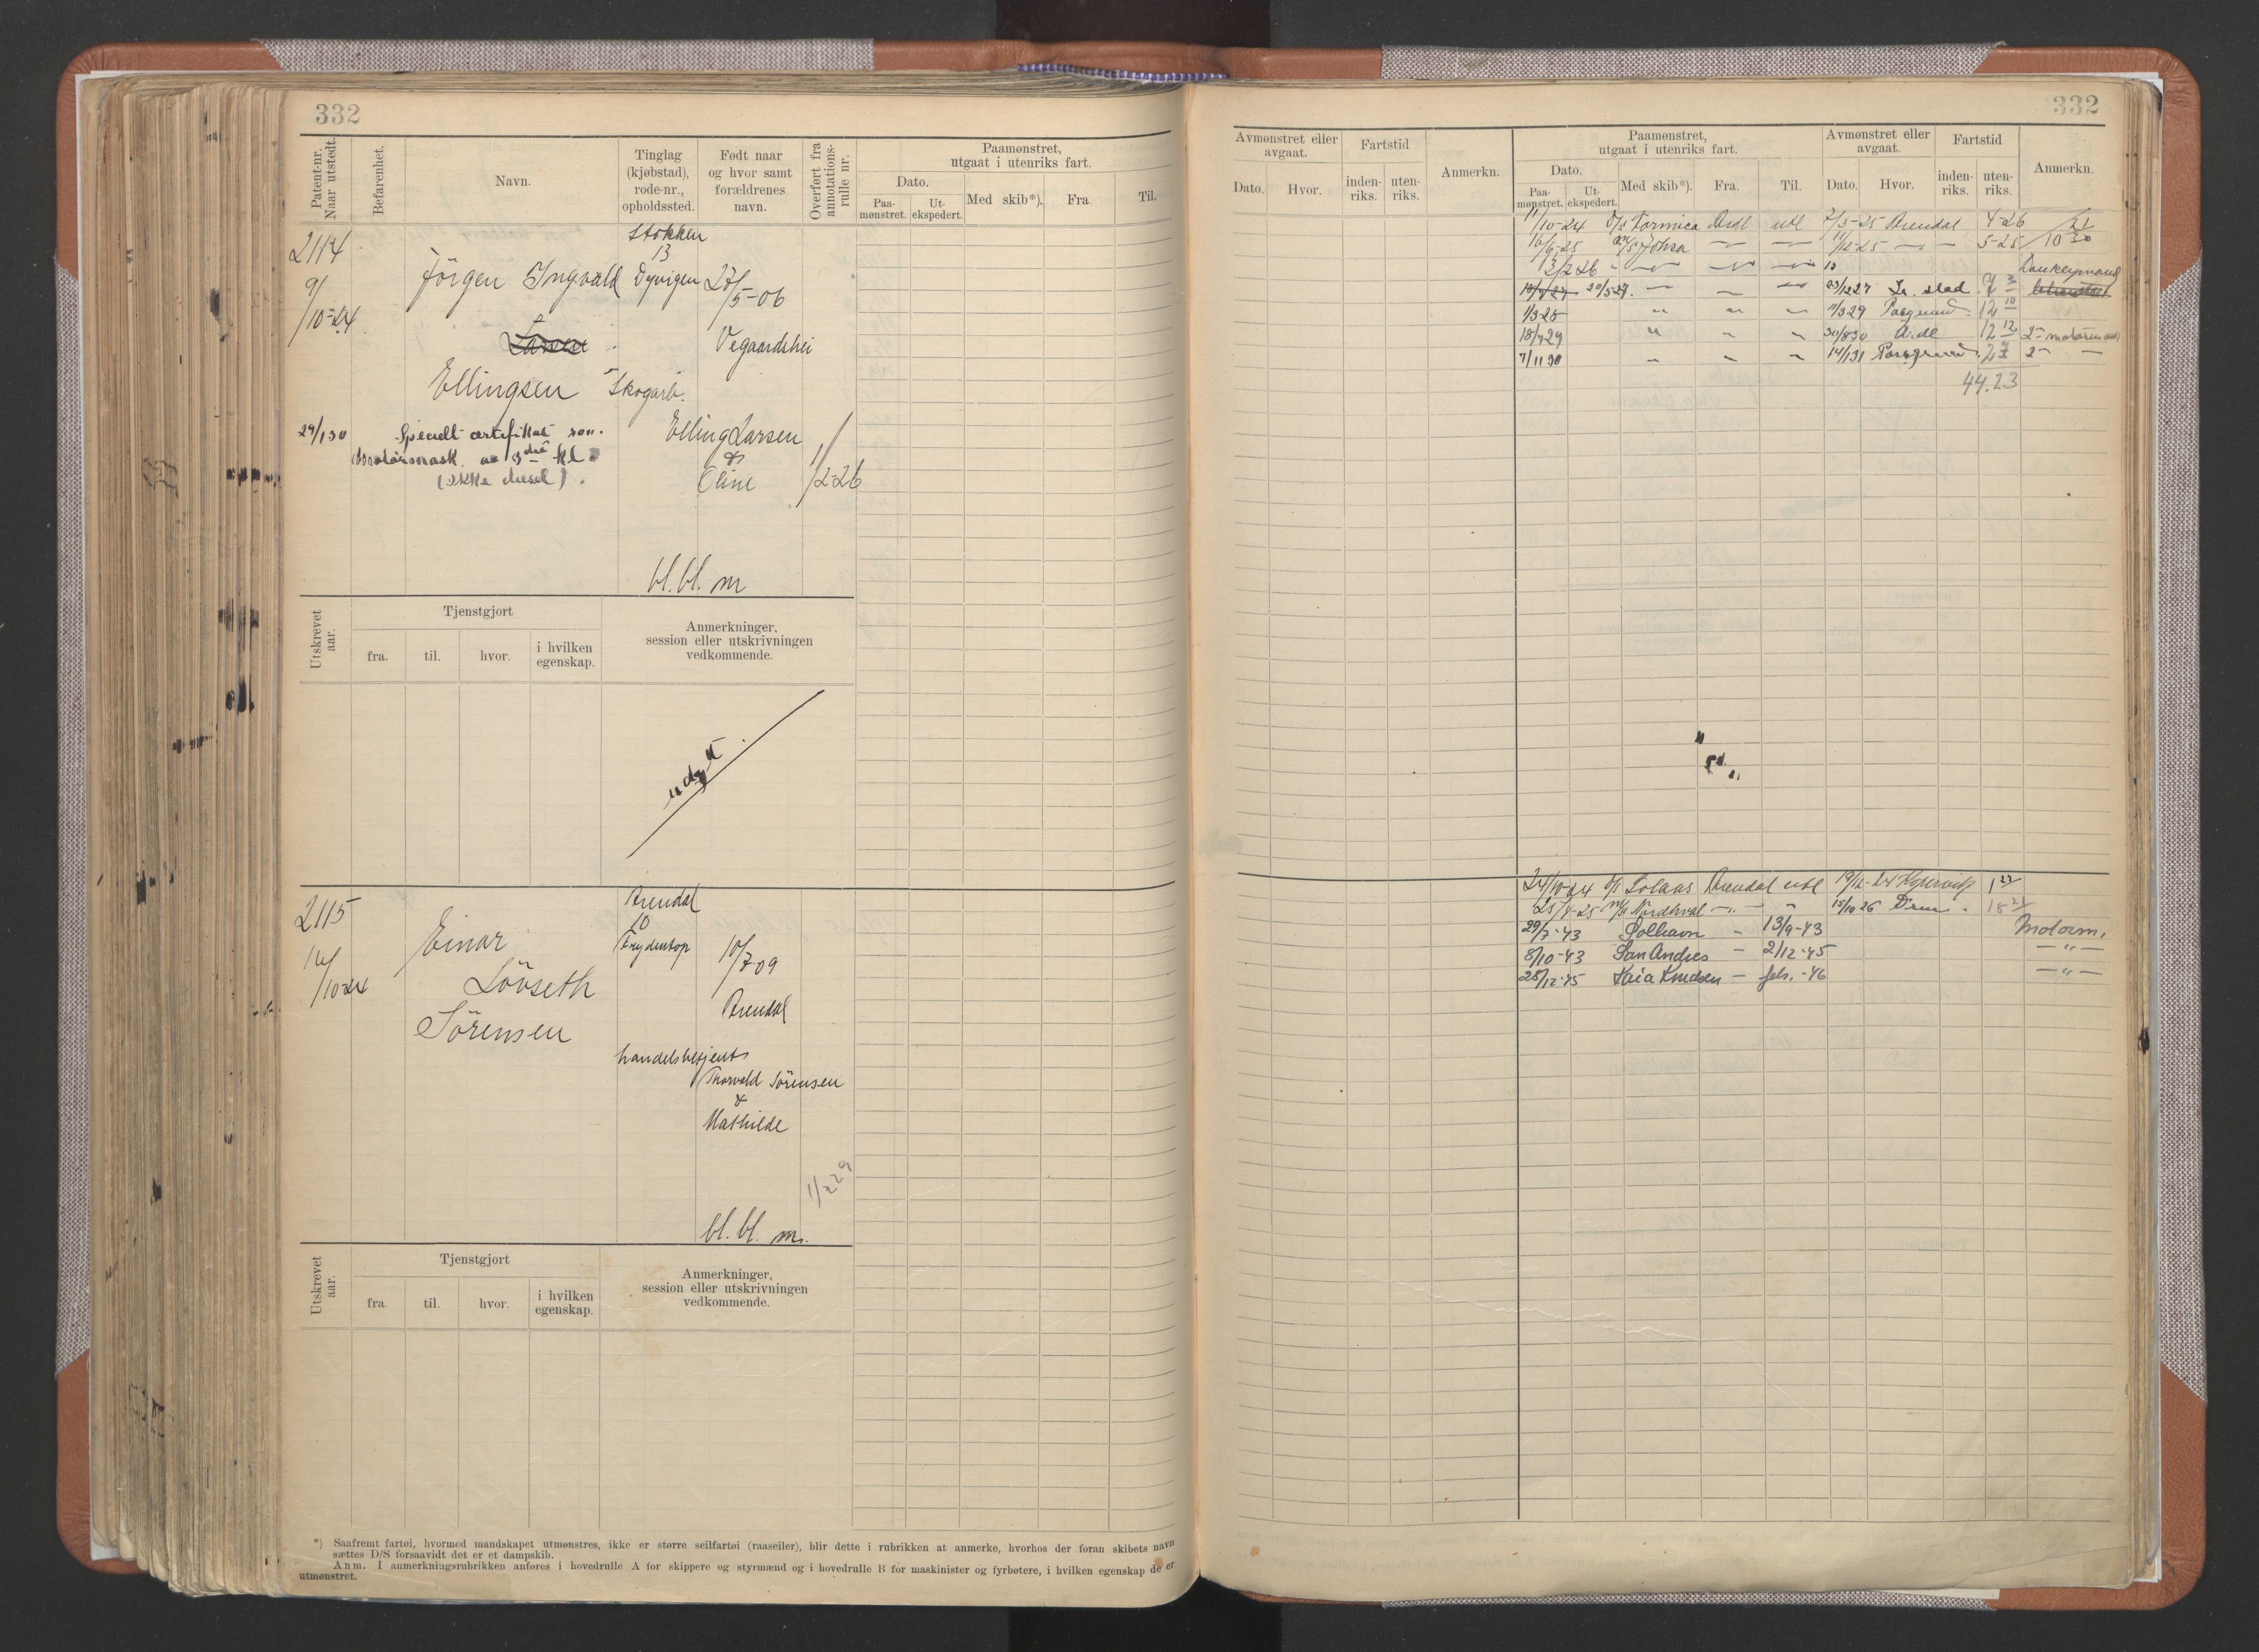 332
Patent-nr. Naar utstedt.
Befarenhet.
Navn.
Tinglag (kjøbstad), rode-nr., opholdssted.
Født naar og hvor samt forældrenes navn.
Overført fra annotations-rulle nr.
Paamønstret, utgaat i utenriks fart.
Dato.
Paa-mønstret.
Ut-ekspedert.
Med skib*).
Fra.
Til.
2114
9/10-24
Jörgen Ingvald
Larsen
Ellingsen
Stokken
13
Dyvigen
Skogarb.
27/5-06
Vegaardshei
Elling Larsen
&
Oline
1/2-26
24/1 30
Specielt certifikat som
Motormask. av 3die kl.
(ikke diesel).
bl. bl. m
Utskrevet aar.
Tjenstgjort
fra.
til.
hvor.
i hvilken egenskap.
Anmerkninger, session eller utskrivningen vedkommende.
udyk.
2115
14/10-24
Einar
Lövseth
Sörensen
Arendal
10
Frydentop
handelsbetjent
10/7-09
Arendal
Thorvald Sörensen
&
Mathilde
1/2 29
bl. bl. m.
Utskrevet aar.
Tjenstgjort
fra.
til.
hvor.
i hvilken egenskap.
Anmerkninger, session eller utskrivningen vedkommende.
*) Saafremt fartøi, hvormed mandskapet utmønstres, ikke er større seilfartøi (raaseiler), blir dette i rubrikken at anmerke, hvorhos der foran skibets navn
sættes D/S forsaavidt det er et dampskib.
Anm. I anmerkningsrubrikken anføres i hovedrulle A for skippere og styrmænd og i hovedrulle B for maskinister og fyrbøtere, i hvilken egenskap de er
utmønstret.
332
Avmønstret eller avgaat.
Dato.
Hvor.
Fartstid
inden-riks.
uten-riks.
Anmerkn.
Paamønstret, utgaat i utenriks fart.
Dato.
Paa-mønstret.
Ut-ekspedert.
Med skib*).
Fra.
Til.
Avmønstret eller avgaat.
Dato.
Hvor.
Fartstid
inden-riks.
uten-riks.
Anmerkn.
11/10-24 D/S Kormica Ardl utl 7/5-25 Arendal
16/6-25 M/S Johsa — — 11/12-25 — —
13/2 26 — — — Donkeymand
10/5 27 20/5-27 — — — 23/12 27 Fr. stad
1/3 28 " " " 1/3 29 Porsgrund 12 10
18/4 29 " " " 30/8 30 A.dl 12 12 2- motormand
7/11 30 " " " 14/1 31 Porsgrund 2- —
44.23
24/10-24 D/S Solaas Arendal utl 19/12-24 Kopervik 1 22
25/4-25 M/S Nordhval — " 15/10 26 Drm.
29/7-43 Solhavn — 13/9-43 Motorm.
8/10-43 San Andres — 2/12-45 — " —
28/12-45 Kaia Knudsen — feb.-46 — " —